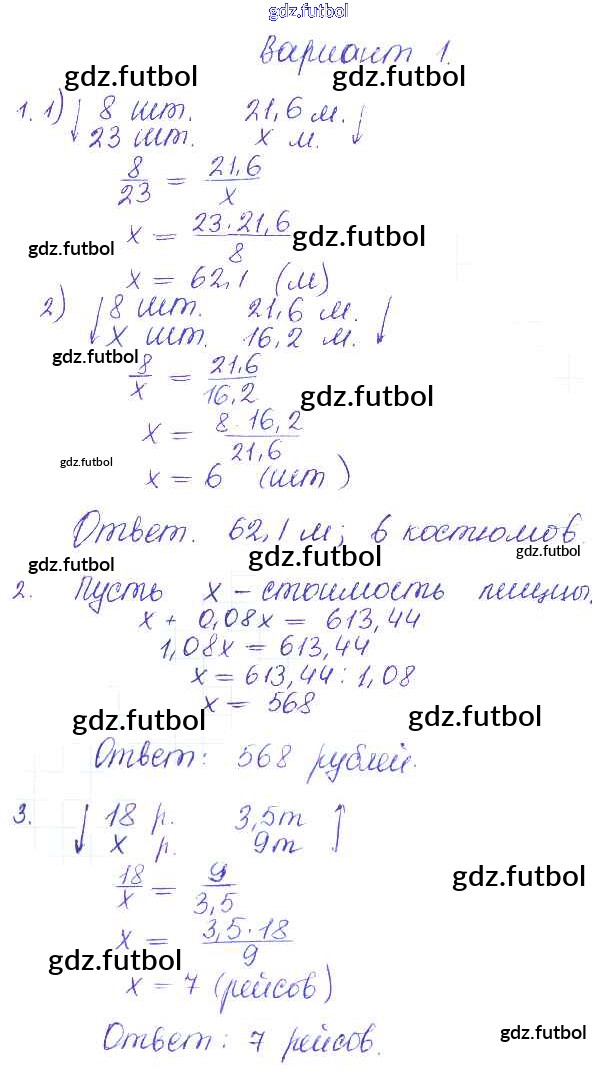 gdz.futbol
Вариант 1.
gdz.futbol gdz.futbol
1. 1) ↓ 8 шт. 21,6 м. ↓
23 шт. x м.
8/23 = 21,6/x
x = 23·21,6/8 gdz.futbol
gdz.futbol
x = 62,1 (м)
2) ↓ 8 шт. 21,6 м. ↓
x шт. 16,2 м.
gdz.futbol
8/x = 21,6/16,2
gdz.futbol
x = 8·16,2/21,6
gdz.futbol
x = 6 (шт)
Ответ. 62,1 м; 6 костюмов
gdz.futbol gdz.futbol gdz.futbol
2. Пусть x – стоимость пиццы.
x + 0,08x = 613,44
1,08x = 613,44
x = 613,44 : 1,08
x = 568
gdz.futbol gdz.futbol
Ответ: 568 рублей.
3. ↓ 18 р. 3,5т ↑
x р. 9т
18/x = 9/3,5
gdz.futbol
x = 3,5·18/9
gdz.futbol
x = 7 (рейсов)
Ответ: 7 рейсов.
gdz.futbol